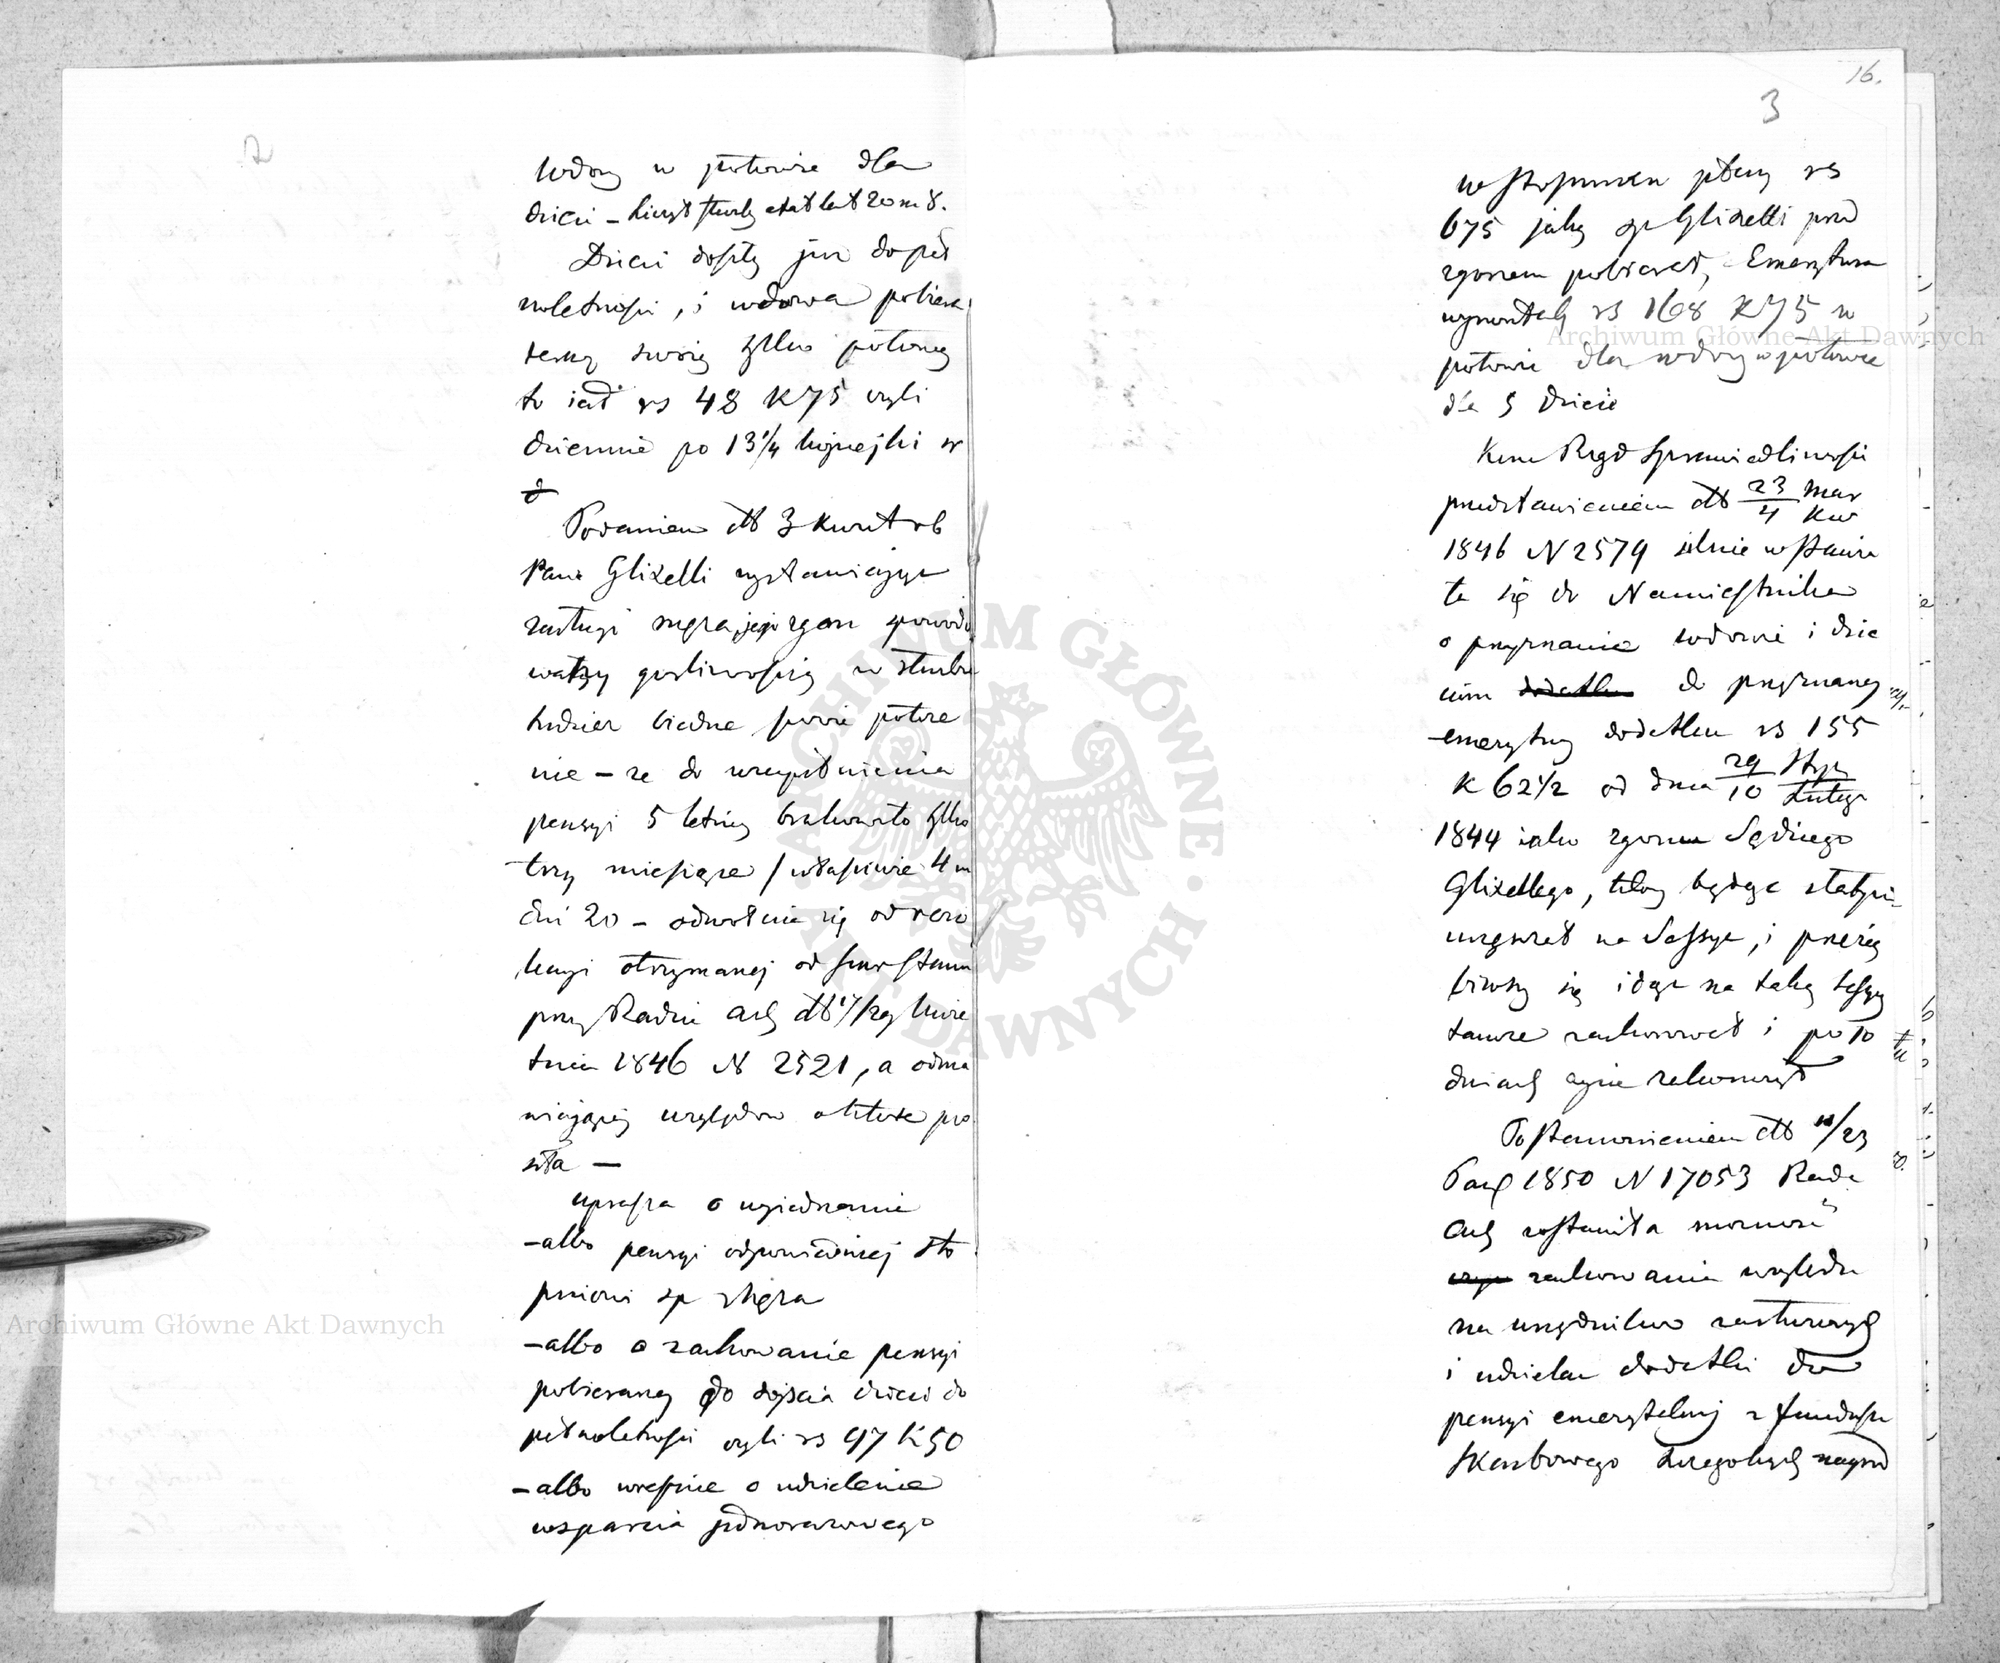 2
wdowy w połowie dla
dzieci – liczył służby etat lat 20 m 8.
Dzieci doszły już do peł
noletności, i wdowa pobiera
teraz swoię tylko połowę
to iest rs 48 K 75 czyli
dziennie po 13 1/4 kopiejki sr
Podaniem dtt 3 Kwiet rb
Pani Glizelli wystawiając
zasługi męża, jego zgon spowodo
wany gorliwością w służbie
tudzież biedne swoie położe
nie – że do uzupełnienia
pensyi 5 letniej brakowało tylko
trzy miesiące / właściwie 4 m
dni 20 – odwołuie się od rezo
lucyi otrzymanej od Sekr Stanu
przy Radzie Adm dtt 17/29 Kwie
tnia 1846 N 2521, a odma
wiającej względów o które pro
siła –
uprasza o wyiednanie
– albo pensyi odpowiedniej sto
pniowi sp męża
– albo o zachowanie pensyi
pobieraney do dojścia dzieci do
pełnoletności czyli rs 97 K 50
– albo wreszcie o udzielenie
wsparcia jednorazowego
16.
3
w stosunku płacy rs
675 jaką sp Glizelli przed
zgonem pobierał, Emerytura
wynosiłaby rs 168 K 75 w
połowie dla wdowy w połowie
dla 5 dzieci
Kom Rząd Sprawiedliwości
przedstawieniem dtt 23/4 Mar/Kw
1846 N 2579 silnie wstawia
ła się do Namiestnika
o przyznanie wdowie i dzie
ciom do przyznaney
emerytury dodatku rs 155
K 62 1/2 od dnia 29/10 Stycz/Lutego
1844 iako zgonu Sędziego
Glizellego, który będąc słabym
uczęszczał na Sessye, i przezię
biwszy się idąc na taką sessyę
zachorował i po 10
dniach życie zakończył
Postanowieniem dtt 11/23
Paź 1850 N 17053 Rada
Adm zostawiła możność
zachowania względu
na urzędników zasłużonych
i udzielać dodatki do
pensyi emerytalnej z funduszu
Skarbowego szczególnych nagród
Archiwum Główne Akt Dawnych
Archiwum Główne Akt Dawnych
ARCHIWUM GŁÓWNE AKT DAWNYCH